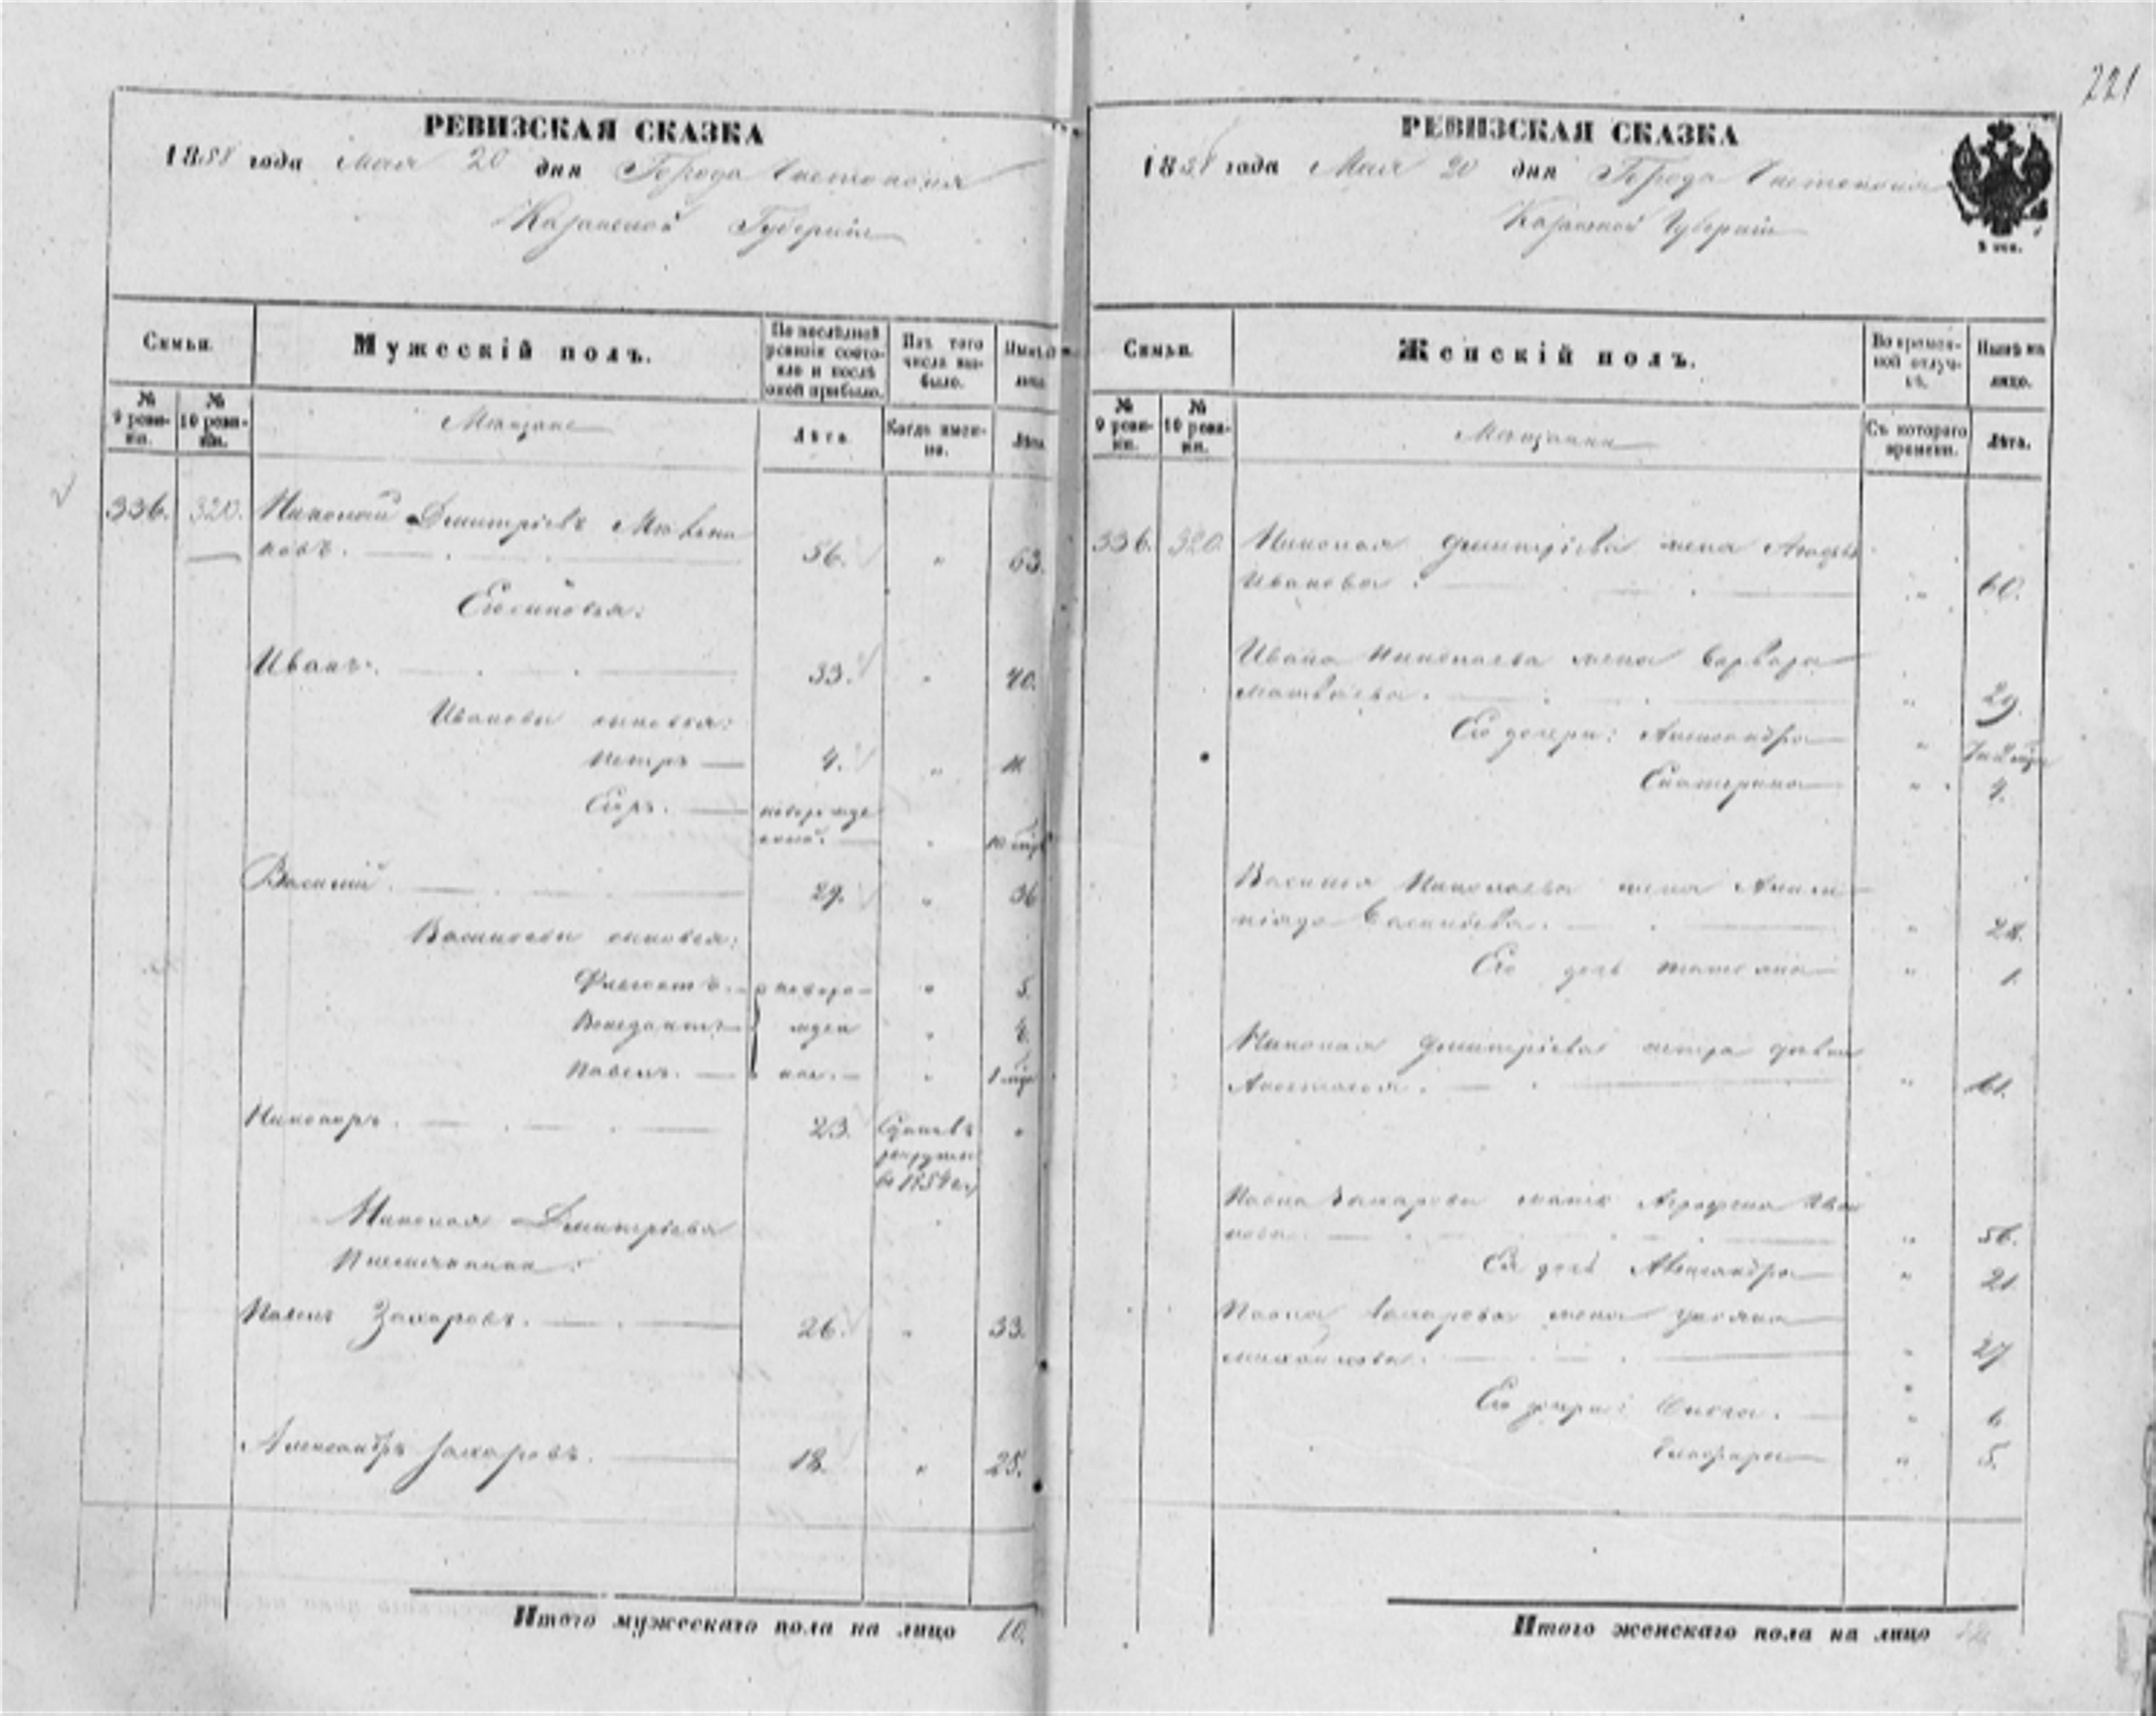 221
РЕВИЗСКАЯ СКАЗКА
1858 года Мая 20 дня Города Чистополя
Казанской Губерніи
Семьи.
Мужескій полъ.
По послѣдней ревизіи состояло и послѣ оной прибыло.
Изъ того числа выбыло.
Нынѣ на лицо.
№ 9 ревизіи.
№ 10 ревизіи.
Мѣщане
Лѣта.
Когда именно.
Лѣта.
336. 320. Николай Дмитріевъ
56. " 63.
Его сыновья:
Иванъ. 33. " 40.
Ивановы сыновья:
Петръ 4. " 11.
новорожде
нный. "
Василий. 29. " 36
Васильевы сыновья:
новоро " 5.
Венедиктъ жден " 4.
Павелъ. ные. "
Никоноръ. 23. Сданъ въ "
рекруты
въ 1854 г.
Николая Дмитріева
Племянники:
Павелъ Захаровъ. 26. " 33.
Александръ Захаровъ. 18. " 25.
Итого мужескаго пола на лицо 10.
РЕВИЗСКАЯ СКАЗКА
1858 года Мая 20 дня Города Чистополя
Казанской Губерніи
Семьи.
Женскій полъ.
Во временной отлучкѣ.
Нынѣ на лицо.
№ 9 ревизіи.
№ 10 ревизіи.
Мѣщанки
Съ котораго времени.
Лѣта.
336. 320. Николая Дмитріева жена
Иванова. " 60.
Ивана Николаева жена Варвара
Матвѣева. " 29.
Его дочери: Александра "
Екатерина " 4.
Василья Николаева жена
Васильева. " 28.
Его дочь Татьяна " 1.
Николая Дмитріева сестра
Анастасія. " 61.
Павла Захарова мать Аграфена Ива
нова. " 56.
Ея дочь Александра " 21
Павла Захарова жена Ульяна
Михайлова. " 27
Его дочери: " 6
Глафира " 5.
Итого женскаго пола на лицо